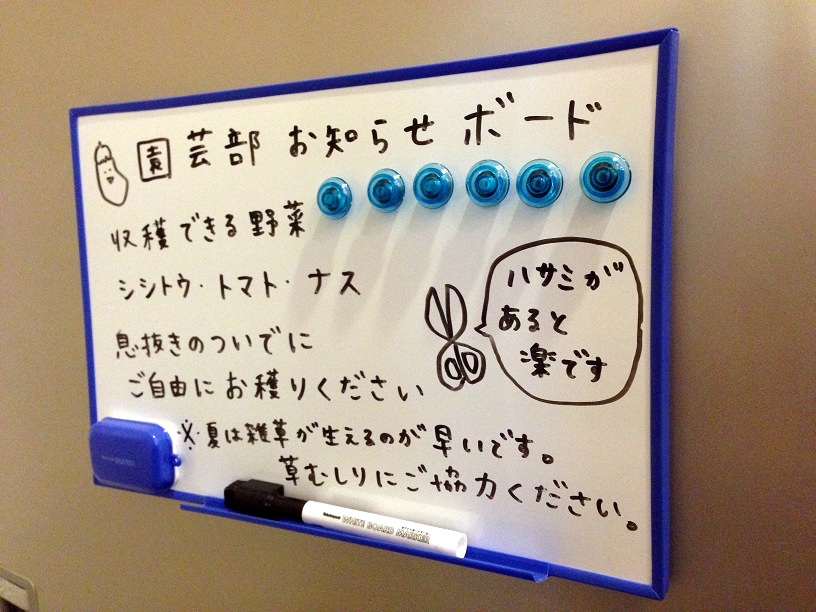 園芸部 お知らせ ボード
収穫できる野菜
シシトウ・トマト・ナス
息抜きのついでに
ご自由にお穫りください
ハサミが
あると
楽です
※夏は雑草が生えるのが早いです。
草むしりにご協力ください。
WHITE BOARD MARKER